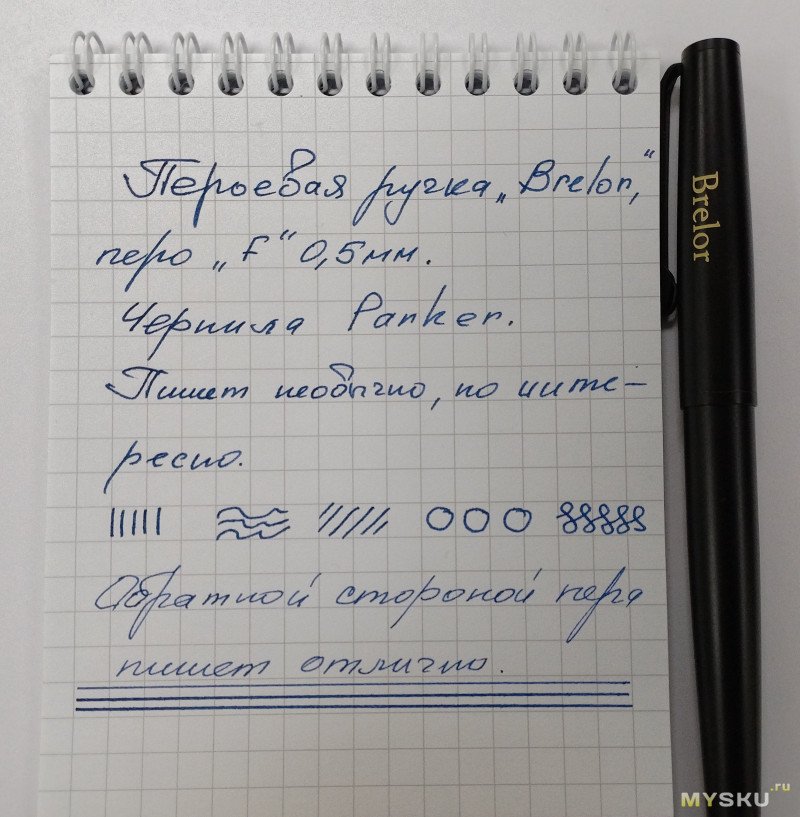 Перьевая ручка „Brelor,“
перо „F“ 0,5мм.
Чернила Parker.
Пишет необычно, но инте-
ресно.
Обратной стороной пера
пишет отлично.
Brelor
MYSKU.ru